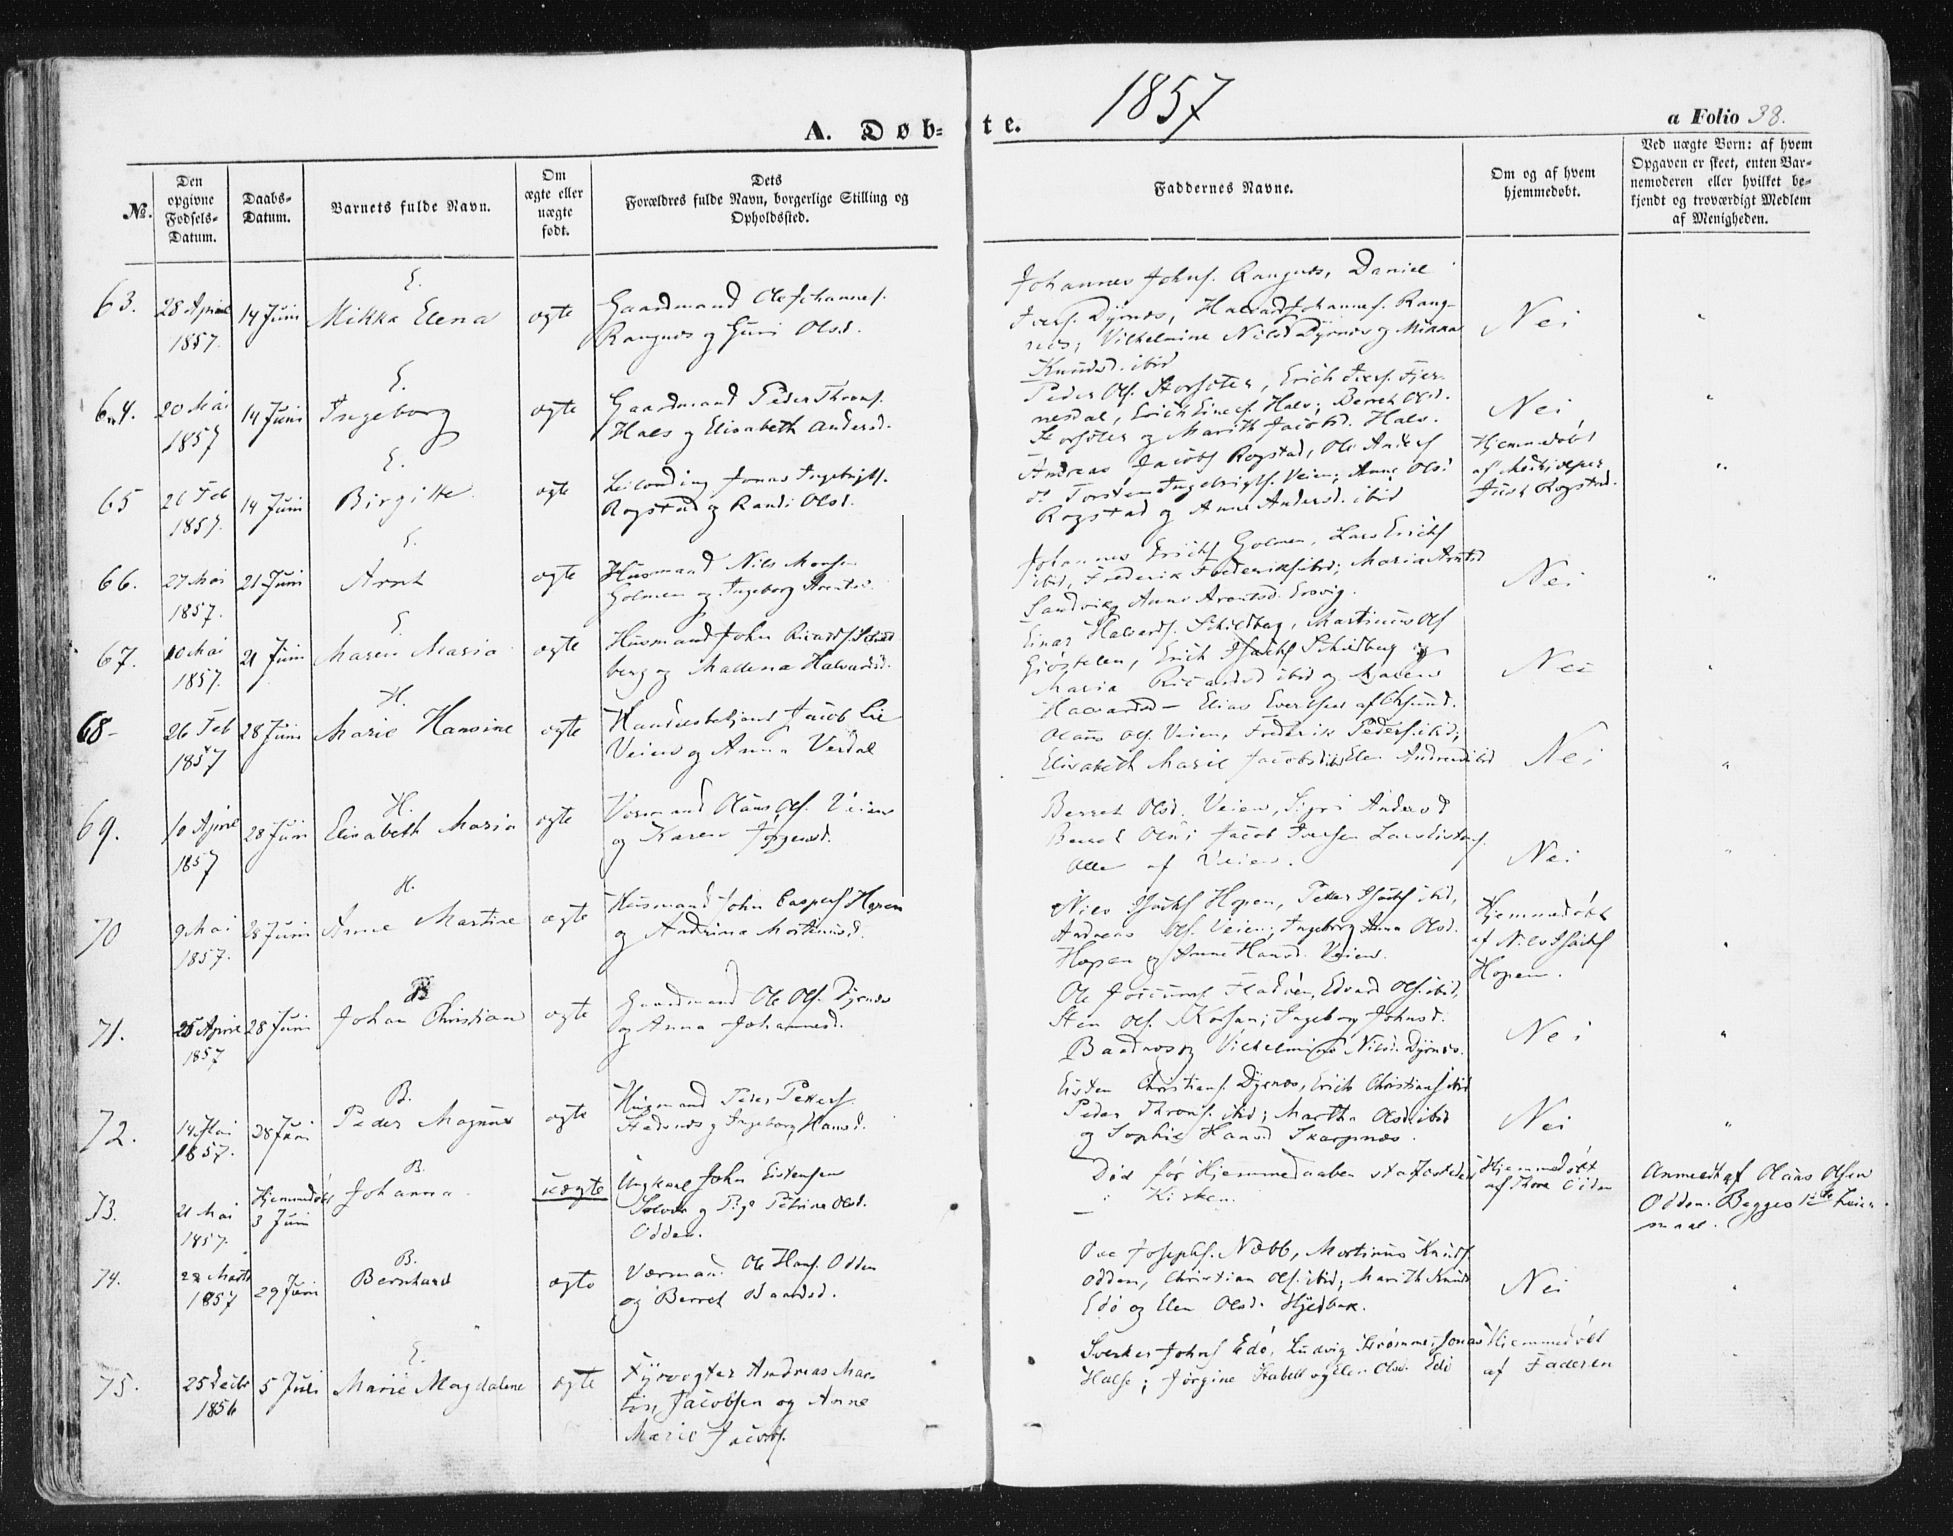 1857
A. Døb-te.
a Folio 38.
№.
Den opgivne Fødsels-Datum.
Daabs-Datum.
Barnets fulde Navn.
Om ægte eller uægte født.
Dets Forældres fulde Navn, borgerlige Stilling og Opholdssted.
Faddernes Navne.
Om og af hvem hjemmedøbt.
Ved uægte Børn: af hvem Opgaven er skeet, enten Barnemoderen eller hvilket bekjendt og troværdigt Medlem af Menigheden.
63. 28 April 1857. 14 Juni E. Mikka Elena ægte
Gaardmand Ole Johannes.
Rangnes og Guri Olsd.
Johannes Johns. Rangnes, Daniel
Ivers. Dyrnes, Halvard Johannes. Rang-
nes; Vilhelmine Nilsd Dyrnes og Mikka
Knudsd. ibid
Nei "
64. 20 Mai 1857 14 Juni E. Ingeborg ægte
Gaardmand Peder Throns.
Hals og Elisabeth Andersd.
Peder Ols. Storsøter, Erich Ivers. Fjer-
nesdal, Erich Einers. Hals; Berret Olsd.
Storsøter og Marith Jacobsd. Hals.
Nei "
65 26 Feb 1857. 14 Juni E. Birgitte ægte
Leilending Jonas Ingebrigts.
Rogstad og Randi Olsd.
Andreas Jacobs Rogstad, Ole Anders
og Torsten Ingebrigts. Veien; Anne Olsd
Rogstad og Anne Andersd. ibid
Hjemmedøbt
af
Rogstad.
"
66. 27 Mai 1857. 21 Juni E. Arnt ægte
Husmand Nils Monsen
Golmen og Ingeborg Arntsd.
Johannes Erichs Golmen, Lars Erichs
ibid, Frederik Frederiks. ibid; Maria Arntsd
Sandvik, Anne Arentsd.
Nei "
67. 10 Mai 1857. 21 Juni E. Maren Maria ægte
Husmand John Ricards. Skild-
berg og Madena Halvardsd.
Einar Halvards. Skildberg, Martinus Ols
Gjøstelen, Erich Isachs Skildberg og
Maria Ricardsd ibid og Maren
Halvardsd – Elias Evertsen af Ørsund.
Nei "
68- 26 Feb 1857 28 Juni H. Marie Hansine ægte
Handelsbetjent Jacob Lie
Veien og Anna Verdal
Olaus Ols. Veien, Frederik Peders. ibid;
Elisabeth Marie Jacobsd ibid Elen Andreasd ibid
Nei "
69. 10 April 1857 28 Juni H. Elisabeth Maria ægte
Vormand Olaus Ols. Veien
og Karen Jørgensd.
Berret Olsd. Veien, Sigri Andersd
Berret Jacob Iversen Lars
Alle af Veien.
Nei "
70 9 Mai 1857. 28 Juni H. Anne Martine ægte
Husmand John Caspers Hopen
og Andrina Mortensd.
Nils Isachs Hopen, Peter Isachs ibid,
Andreas Ols. Veien; Ingeborg Anna Olsd.
Hopen og Anne Hansd. Veien.
Hjemmedøbt
af Nils Isachs
Hopen.
"
71. 25 April 1857 28 Juni B Johan Christian ægte
Gaardmand Ole Ols. Dyrnes
og Anna Johannesd.
Ole Fladøen, Edvard Ols. ibid,
Sten Ols. Korsøn; Ingeborg Johnsd.
Baadnes og Vilhelmine Nilsd. Dyrnes.
Nei "
72. 14 Mai 1857. 28 Juni B. Peder Magnus ægte
Husmand Peder Petters.
Stedsnes og Ingeborg Hansd.
Eisten Christians. Dyrnes, Erich Christians ibid
Peder Throns. ibid; Martha Olsd. ibid
og Sophie Hansd Skarpnes.
Nei "
73. 21 Mai 1857. Hjemmedøbt 3 Juni B. Johanna. uægte
Ungkarl John Eistensen
og Pige Petrine Olsd.
Odden.
Død før Hjemmedaaben stadfæstedes
i Kirken.
Hjemmedøbt
af Thore Odden
Anmeldt af Olaus Olsen
Odden. Begges 1ste Leier-
maal.
74. 22 Marts 1857 29 Juni B. Bernhard ægte
Værmand Ole Hans. Odden
og Berret Baardsd.
Ove Josephs. Næbb, Mortinus Knuds
Odden, Christian Ols. ibid; Marith Knudsd
Edø og Elen Olsd. Hjedbak.
Nei "
75. 25 Decbr 1856 5 Juli E. Marie Magdalene ægte
Fyrvogter Andreas Mar-
tin Jacobsen og Anne
Marie Jacobs.
Sverker Johns Edø, Ludvig Strømme, Jonas
Halse; Jørgine Stabell og Elen Olsd. Edø
Hjemmedøbt
af Faderen